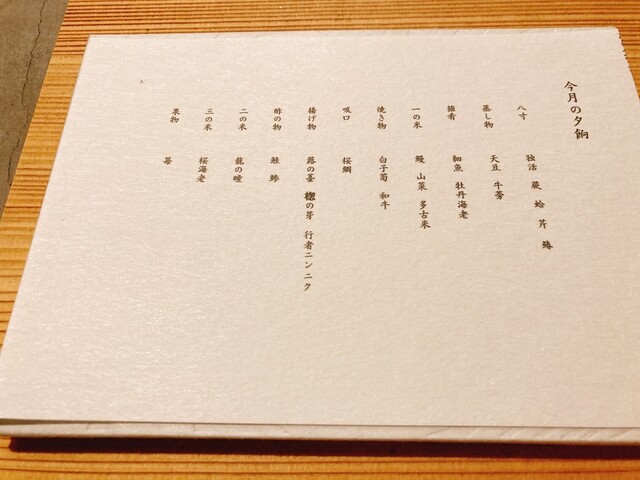 今月の夕餉
八寸 独活 蕨 蛤 芹
蒸し物 天豆 牛蒡
強肴 細魚 牡丹海老
一の米 鰻 山菜 多古米
焼き物 白子筍 和牛
吸口 桜鯛
揚げ物 蕗の薹 楤の芽 行者ニンニク
酢の物 鮭 鯵
二の米 龍の瞳
三の米 桜海老
果物 苺